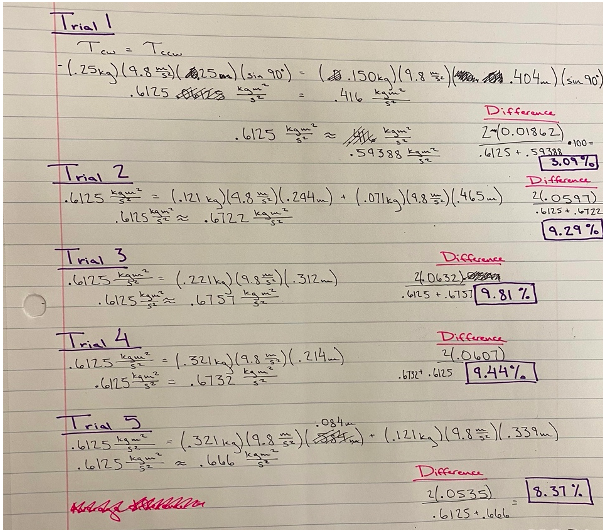 Trial 1
Tcw = Tccw
-(.25kg)(9.8 m/s²)(.25m)(sin 90°) = (.150kg)(9.8 m/s²)(.404m)(sin 90°)
.6125 kgm²/s² = .416 kgm²/s²
Difference
.6125 kgm²/s² ≈ kgm²/s²
.59388 kgm²/s²
2(0.01862)
.6125 + .59388 •100=
3.09%
Trial 2
.6125 kgm²/s² = (.121 kg)(9.8 m/s²)(.294m) + (.071kg)(9.8 m/s²)(.465m)
.6125 kgm²/s² ≈ .6722 kgm²/s²
Difference
2(.0597)
.6125 + .6722
9.29%
Trial 3
.6125 kgm²/s² = (.221kg)(9.8 m/s²)(.312m)
.6125 kgm²/s² ≈ .6757 kgm²/s²
Difference
2(.0632)
.6125 + .6757 9.81%
Trial 4
.6125 kgm²/s² = (.321kg)(9.8 m/s²)(.214m)
.6125 kgm²/s² = .6732 kgm²/s²
Difference
2(.0607)
.6732+ .6125 9.44%
Trial 5
.084m
.6125 kgm²/s² = (.321kg)(9.8 m/s²)( ) + (.121kg)(9.8 m/s²)(.339m)
.6125 kgm²/s² ≈ .666 kgm²/s²
Difference
2(.0535) = 8.37%
.6125+.666